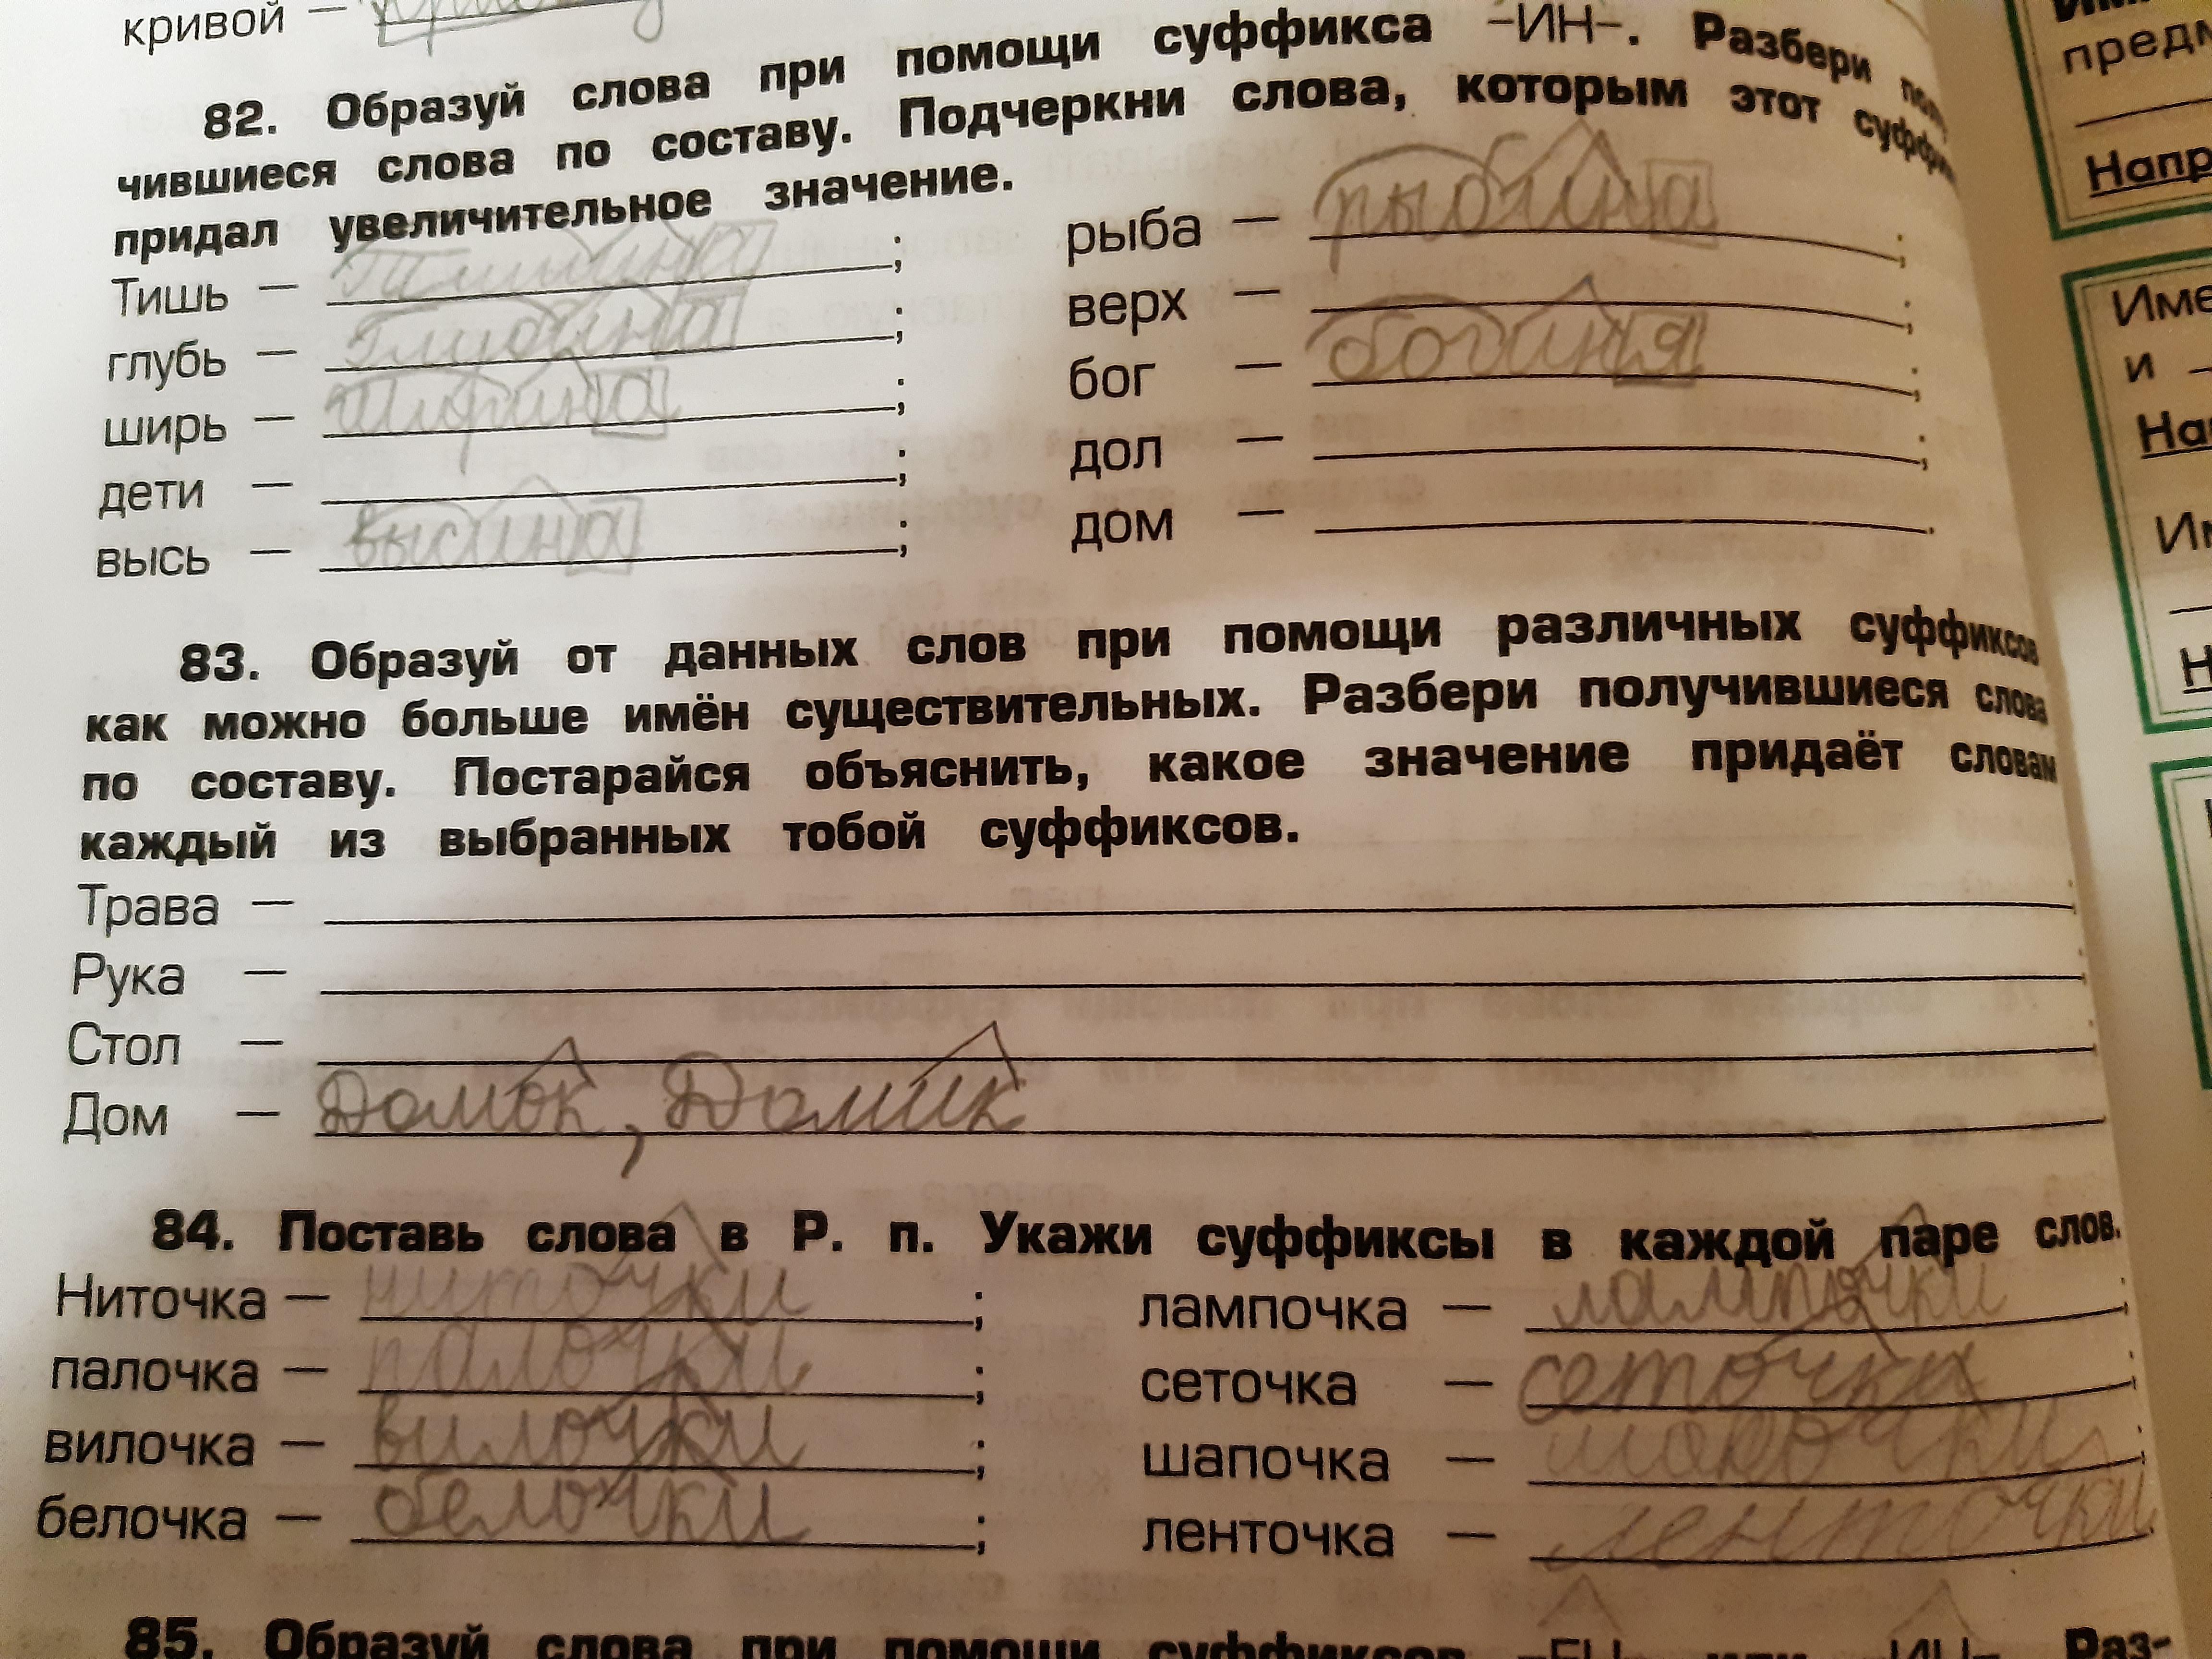 кривой —
82. Образуй слова при помощи суффикса –ИН–. Разбери полу
чившиеся слова по составу. Подчеркни слова, которым этот суффикс
придал увеличительное значение.
Тишь — Тишина ;
глубь — Глубина ;
ширь — Ширина ;
дети — ;
высь — высина ;
рыба — рыбина ;
верх — ;
бог — богиня ;
дол — ;
дом — .
83. Образуй от данных слов при помощи различных суффиксов
как можно больше имён существительных. Разбери получившиеся слова
по составу. Постарайся объяснить, какое значение придаёт словам
каждый из выбранных тобой суффиксов.
Трава —
Рука —
Стол —
Дом — Домок, Домик
84. Поставь слова в Р. п. Укажи суффиксы в каждой паре слов.
Ниточка — ниточки ;
палочка — палочки ;
вилочка — вилочки ;
белочка — белочки ;
лампочка — лампочки ;
сеточка — сеточки ;
шапочка — шапочки ;
ленточка — ленточки .
85. Образуй слова при помощи суффиксов –ЕЦ– или –ИЦ–. Раз-
предм
Напр
Име
и
На